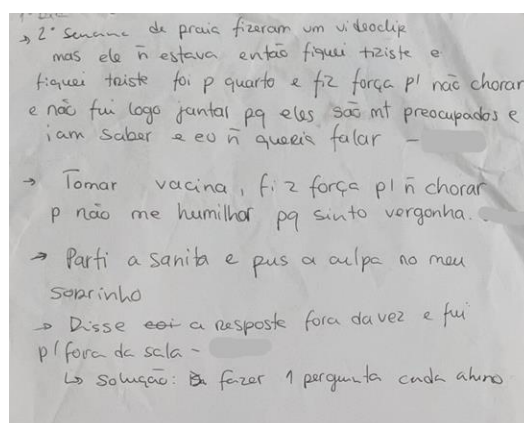 → 2ª semana de praia fizeram um videoclip
mas ele ñ estava então fiquei triste e
fiquei triste foi p quarto e fiz força p/ não chorar
e não fui logo jantal pq eles são mt preocupados e
iam saber e eu ñ queria falar -
→ Tomar vacina, fiz força p/ ñ chorar
p não me humilhar pq sinto vergonha.
→ Parti a sanita e pus a culpa no meu
soprinho
→ Disse a resposta fora da vez e fui
p/ fora da sala -
↳ solução: fazer 1 pergunta cada aluno